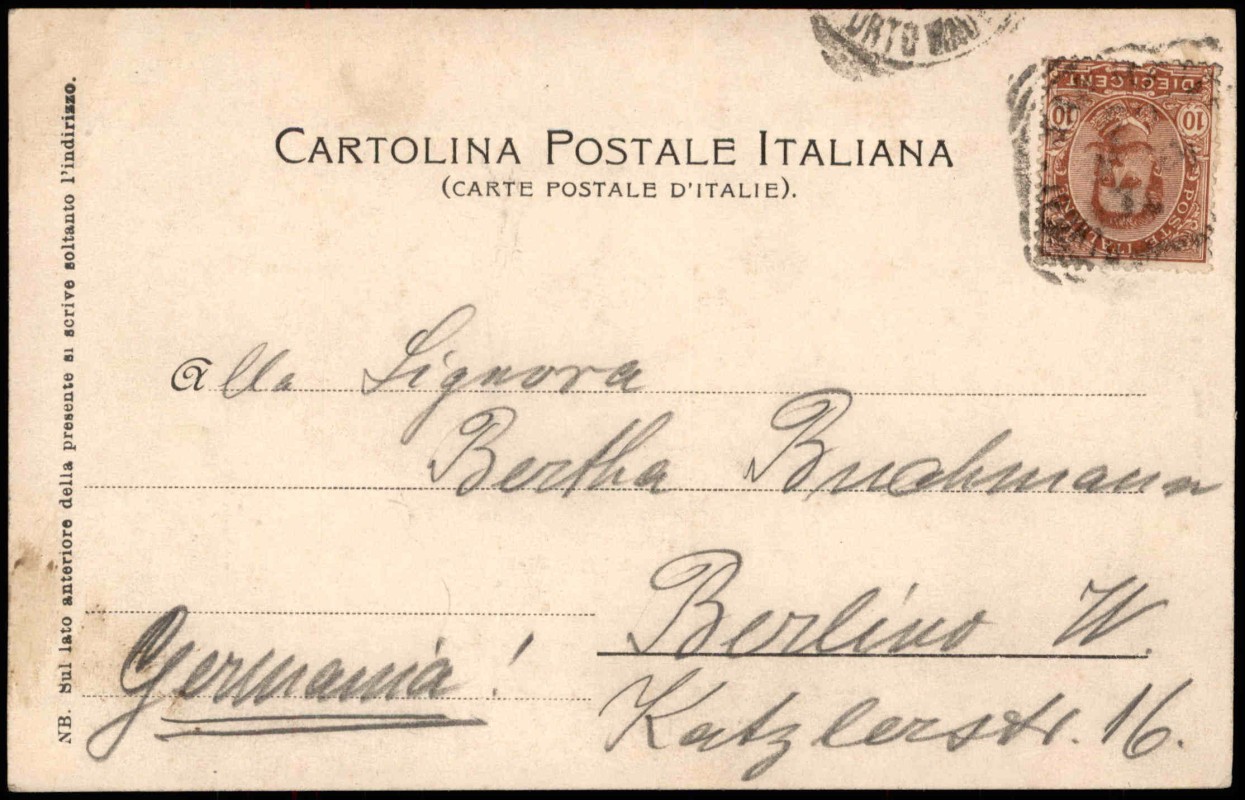 CARTOLINA POSTALE ITALIANA
(CARTE POSTALE D'ITALIE).
DIECI CENT
10 10
POSTE ITALIANE
Alla Signora
Bertha Buchmann
Berlino W.
Germania!
Katzlerstr. 16.
NB. Sul lato anteriore della presente si scrive soltanto l'indirizzo.